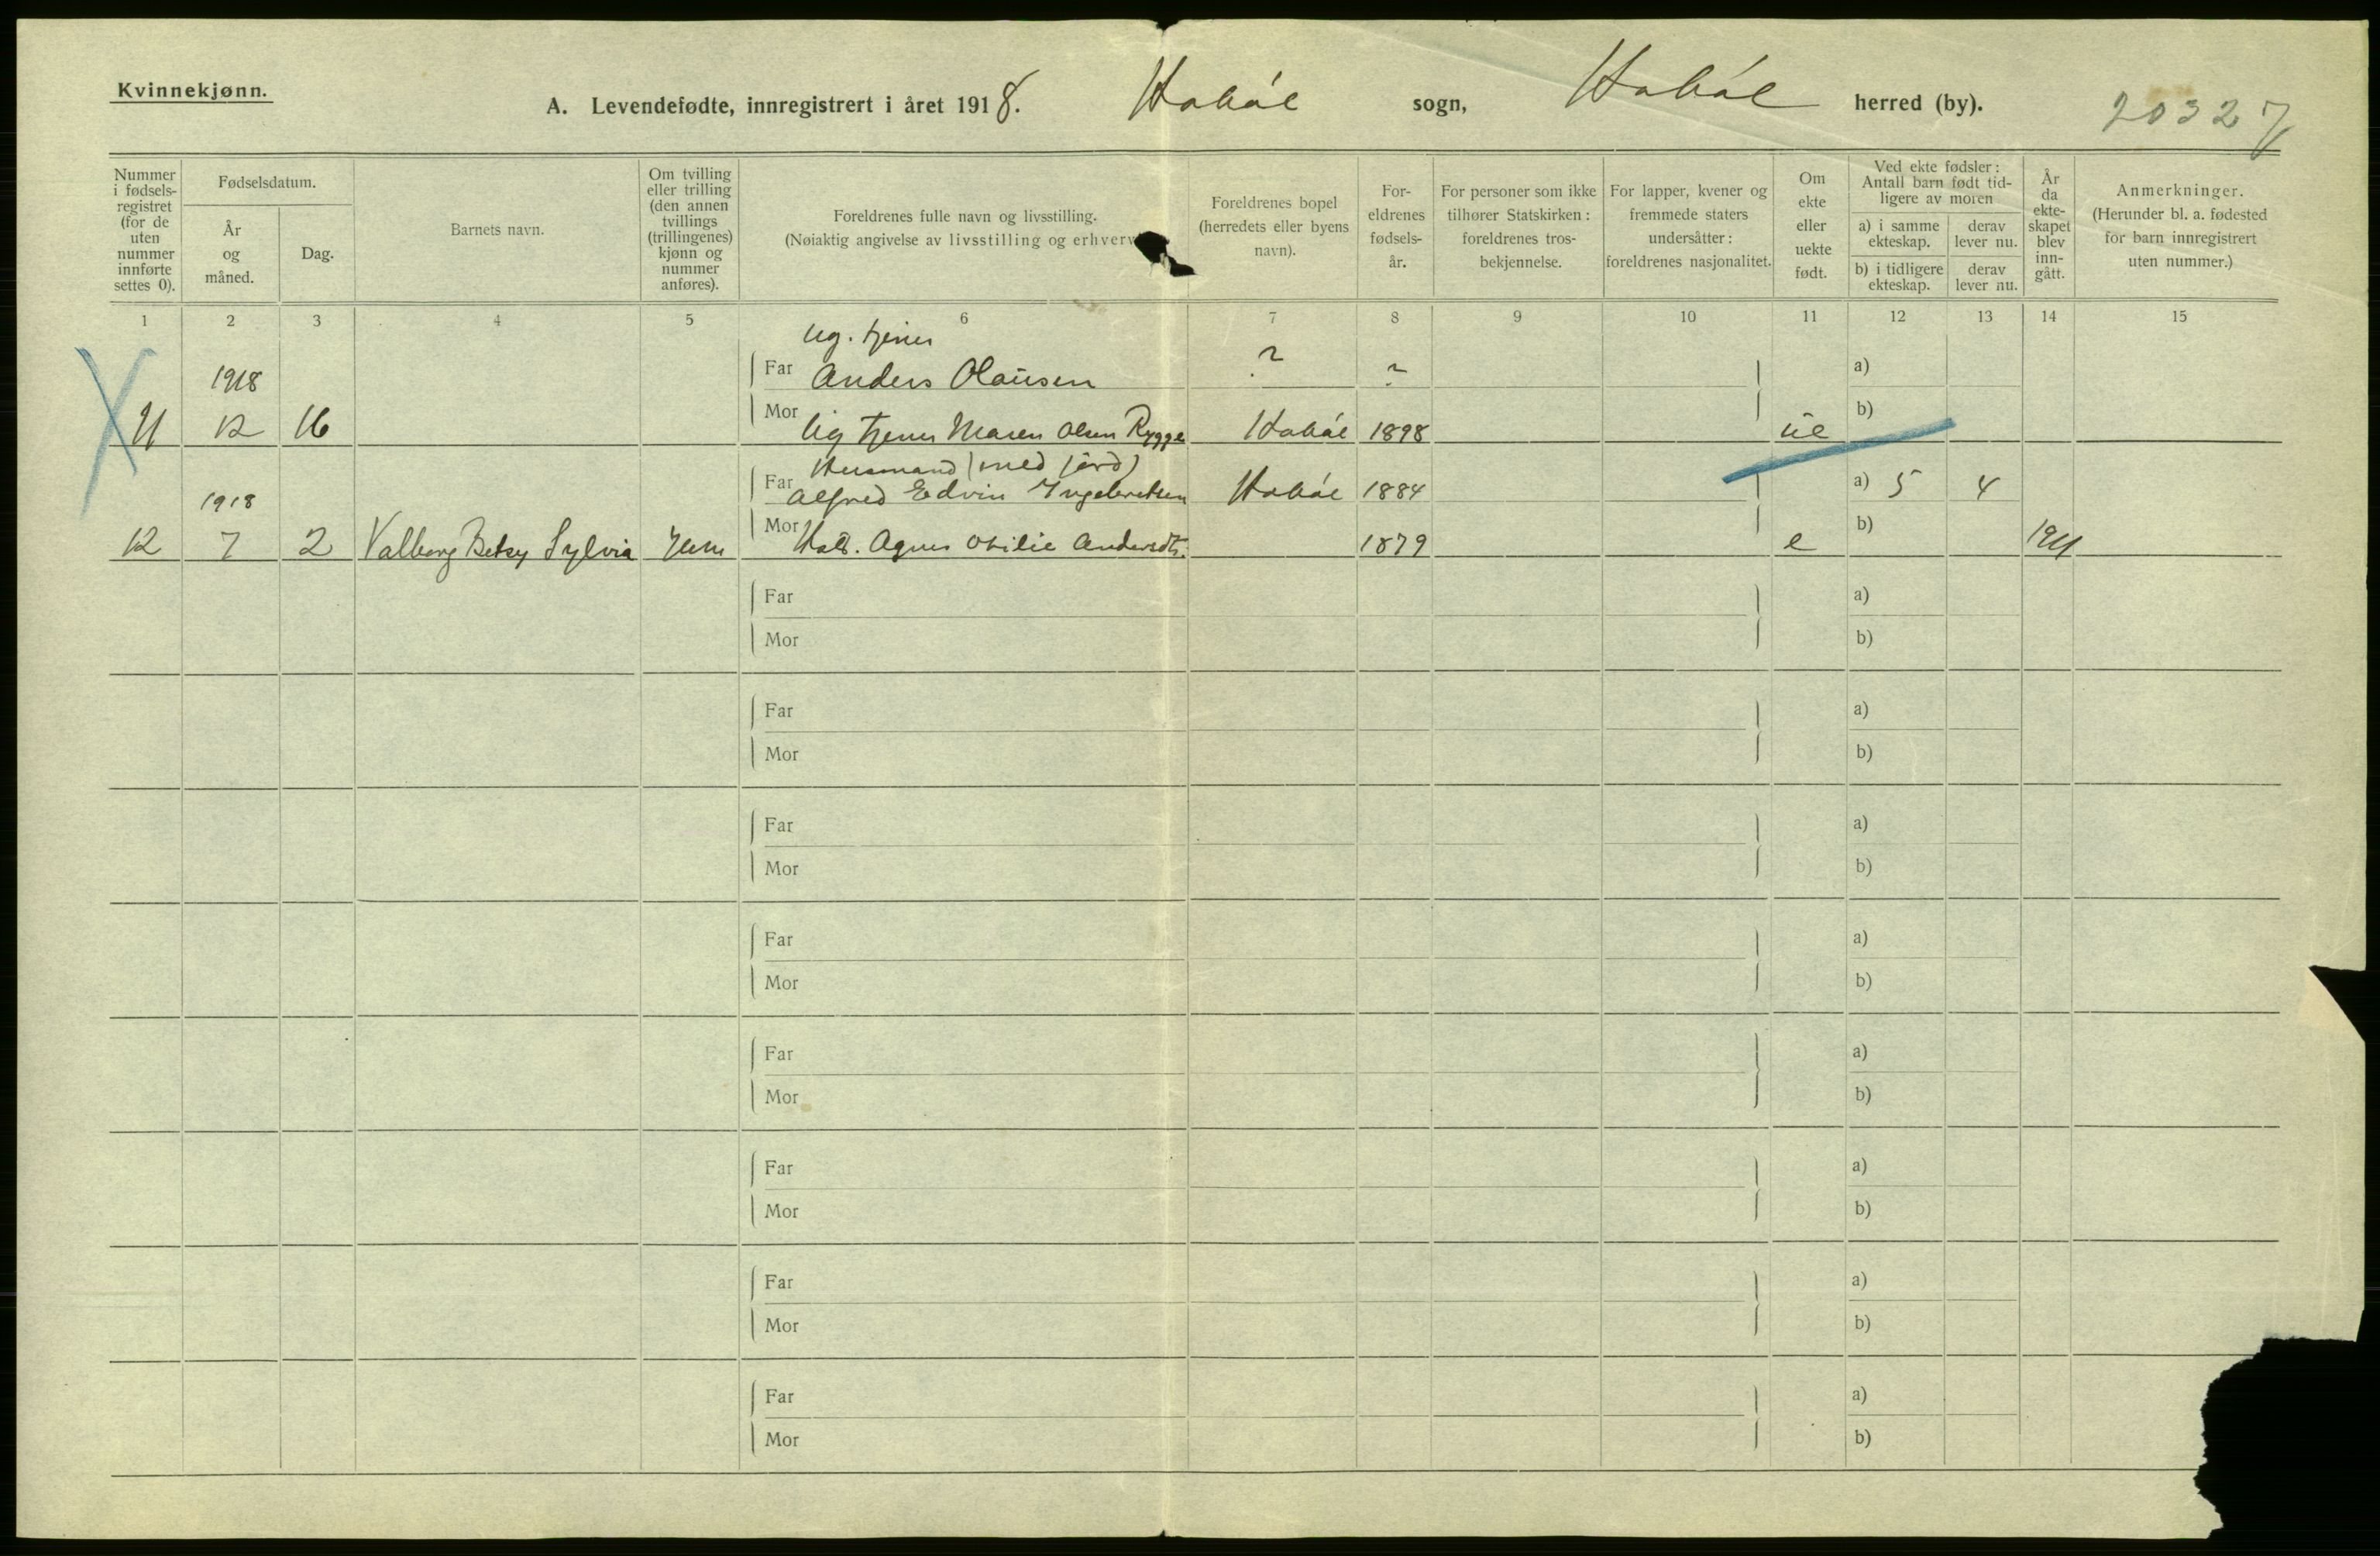 Kvinnekjønn.
A. Levendefødte, innregistrert i året 1918. Hobøl sogn, Hobøl herred (by). 20327
Nummer i fødsels-registret (for de uten nummer innførte settes 0).
Fødselsdatum.
År og måned.
Dag.
Barnets navn.
Om tvilling eller trilling (den annen tvillings (trillingenes) kjønn og nummer anføres).
Foreldrenes fulle navn og livsstilling.
(Nøiaktig angivelse av livsstilling og erhverv
Foreldrenes bopel (herredets eller byens navn).
For-eldrenes fødsels-år.
For personer som ikke tilhører Statskirken: foreldrenes tros-bekjennelse.
For lapper, kvener og fremmede staters undersåtter: foreldrenes nasjonalitet.
Om ekte eller uekte født.
Ved ekte fødsler: Antall barn født tid-ligere av moren
a) i samme ekteskap.
derav lever nu.
b) i tidligere ekteskap.
derav lever nu.
År da ekte-skapet blev inn-gått.
Anmerkninger.
(Herunder bl. a. fødested for barn innregistrert uten nummer.)
1 2 3 4 5 6 7 8 9 10 11 12 13 14 15
ug. tjener
1918 Far Anders Olausen ? ? a)
11 12 16 Mor Ug tjener Maren Olsen Rygge Hobøl 1898 ue b)
Husmand (med jord)
1918 Far Alfred Edvin Ingebretsen Hobøl 1884 a) 5 4
12 7 2 Valborg Betsy Sylvia Mor Agnes Otilie Andersdtr. 1879 e b) 1911
Far a)
Mor b)
Far a)
Mor b)
Far a)
Mor b)
Far a)
Mor b)
Far a)
Mor b)
Far a)
Mor b)
Far a)
Mor b)
Far a)
Mor b)